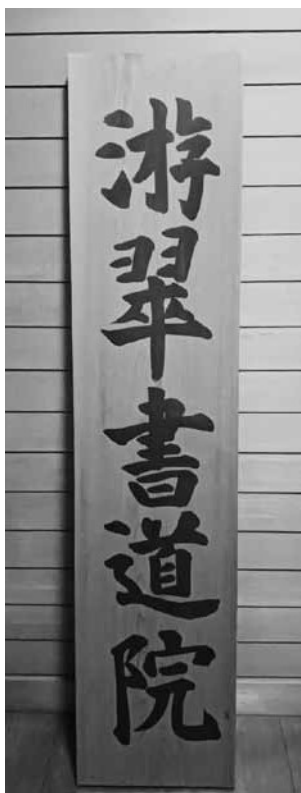 游翠書道院